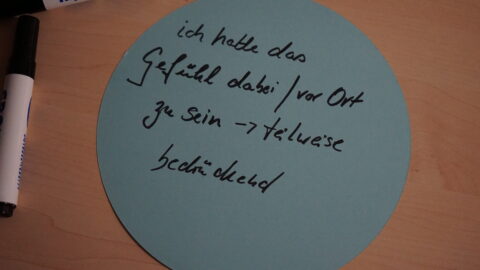 ich hatte das
Gefühl dabei / vor Ort
zu sein → teilweise
bedrückend